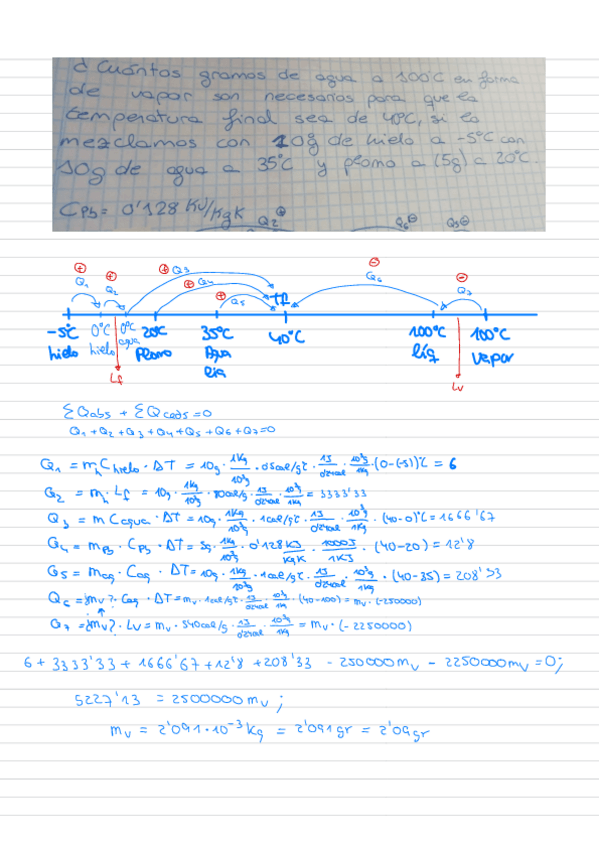 ¿Cuántos gramos de agua a 100°C en forma
de vapor son necesarios para que la
temperatura final sea de 40°C, si lo
mezclamos con 10g de hielo a -5°C con
10g de agua a 35°C y plomo a (5g) a 20°C.
CPb = 0'128 KJ/KgK Q2 ⊖ Q6 ⊖ Q3 ⊖
⊕ Q1 ⊕ Q2 ⊕ Q3 ⊕ Q4 ⊕ Q5 TF ⊖ Q6 ⊖ Q7
-5°C hielo 0°C hielo 0°C agua 20°C Plomo 35°C Agua liq 40°C 100°C líq 100°C vapor
Lf Lv
ΣQabs + ΣQceds = 0
Q1 + Q2 + Q3 + Q4 + Q5 + Q6 + Q7 = 0
Q1 = mh Chielo · ΔT = 10g · 1Kg/10³g · 0'5cal/g°C · 1J/0'24cal · 10³g/1Kg · (0-(-5))°C = 6
Q2 = mh · Lf = 10g · 1Kg/10³g · 80cal/g · 1J/0'24cal · 10³g/1Kg = 3333'33
Q3 = m Cagua · ΔT = 10g · 1Kg/10³g · 1cal/g°C · 1J/0'24cal · 10³g/1Kg · (40-0)°C = 1666'67
Q4 = mPb · CPb · ΔT = 5g · 1Kg/10³g · 0'128KJ/KgK · 1000J/1KJ · (40-20) = 12'8
Q5 = mag · Cag · ΔT = 10g · 1Kg/10³g · 1cal/g°C · 1J/0'24cal · 10³g/1Kg · (40-35) = 208'33
Q6 = ¿mv? · Cag · ΔT = mv · 1cal/g°C · 1J/0'24cal · 10³g/1Kg · (40-100) = mv · (-250000)
Q7 = ¿mv? · Lv = mv · 540cal/g · 1J/0'24cal · 10³g/1Kg = mv · (-2250000)
6 + 3333'33 + 1666'67 + 12'8 + 208'33 - 250000mv - 2250000mv = 0;
5227'13 = 2500000mv;
mv = 2'091 · 10⁻³ Kg = 2'091gr = 2'09gr